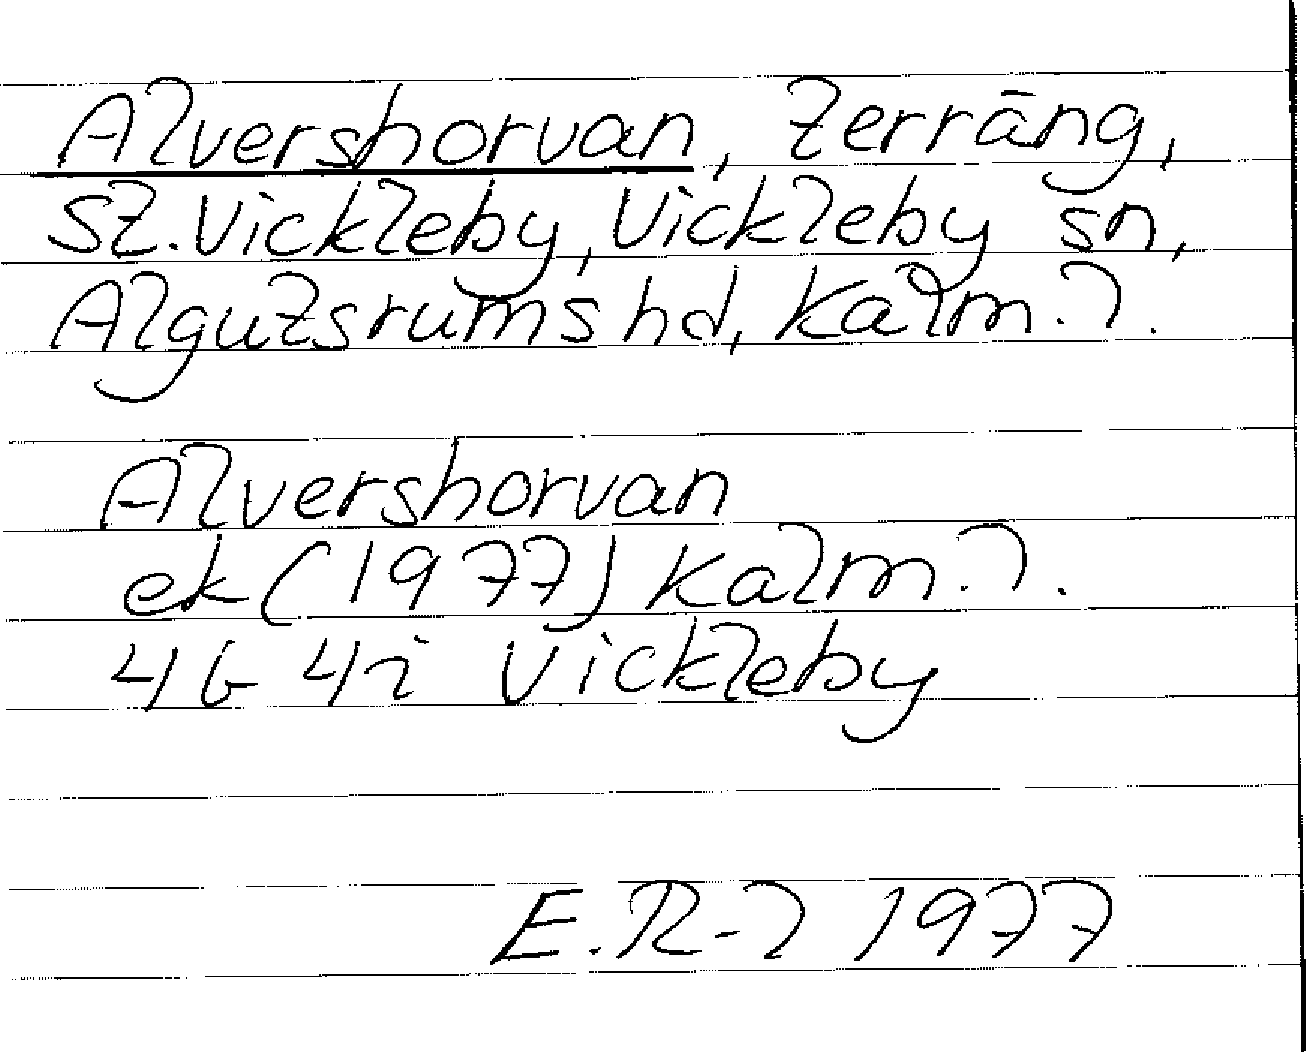 Alvershorvan, terräng,
St. Vickleby, Vickleby sn,
Algutsrums hd, Kalm. l.
Alvershorvan
ek (1977) Kalm. l.
4G 4i Vickleby
E. R-l 1977